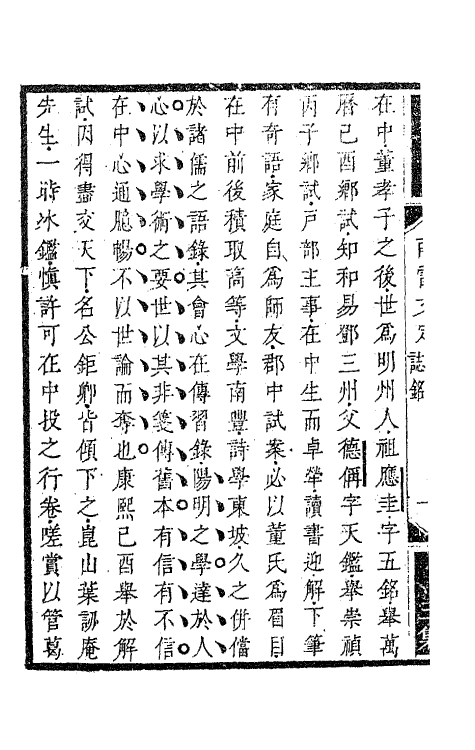 南雷文定 誌銘 一
在中董孝子之後世爲明州人祖應圭字五銘舉萬
曆己酉鄉試知和易鄧三州父德偁字天鑑舉崇禎
丙子鄉試戶部主事在中生而卓犖讀書迎解下筆
有奇語家庭自爲師友郡中試案必以董氏爲眉目
在中前後積取高等文學南豐詩學東坡久之併儅
於諸儒之語錄其會心在傳習錄陽明之學達於人
心以求學術之要世以其非箋傳舊本有信有不信
在中心通臆暢不以世論而奪也康熙己酉舉於解
試因得盡交天下名公鉅卿皆傾下之崑山葉訒庵
先生一時冰鑑愼許可在中投之行卷嗟賞以管葛